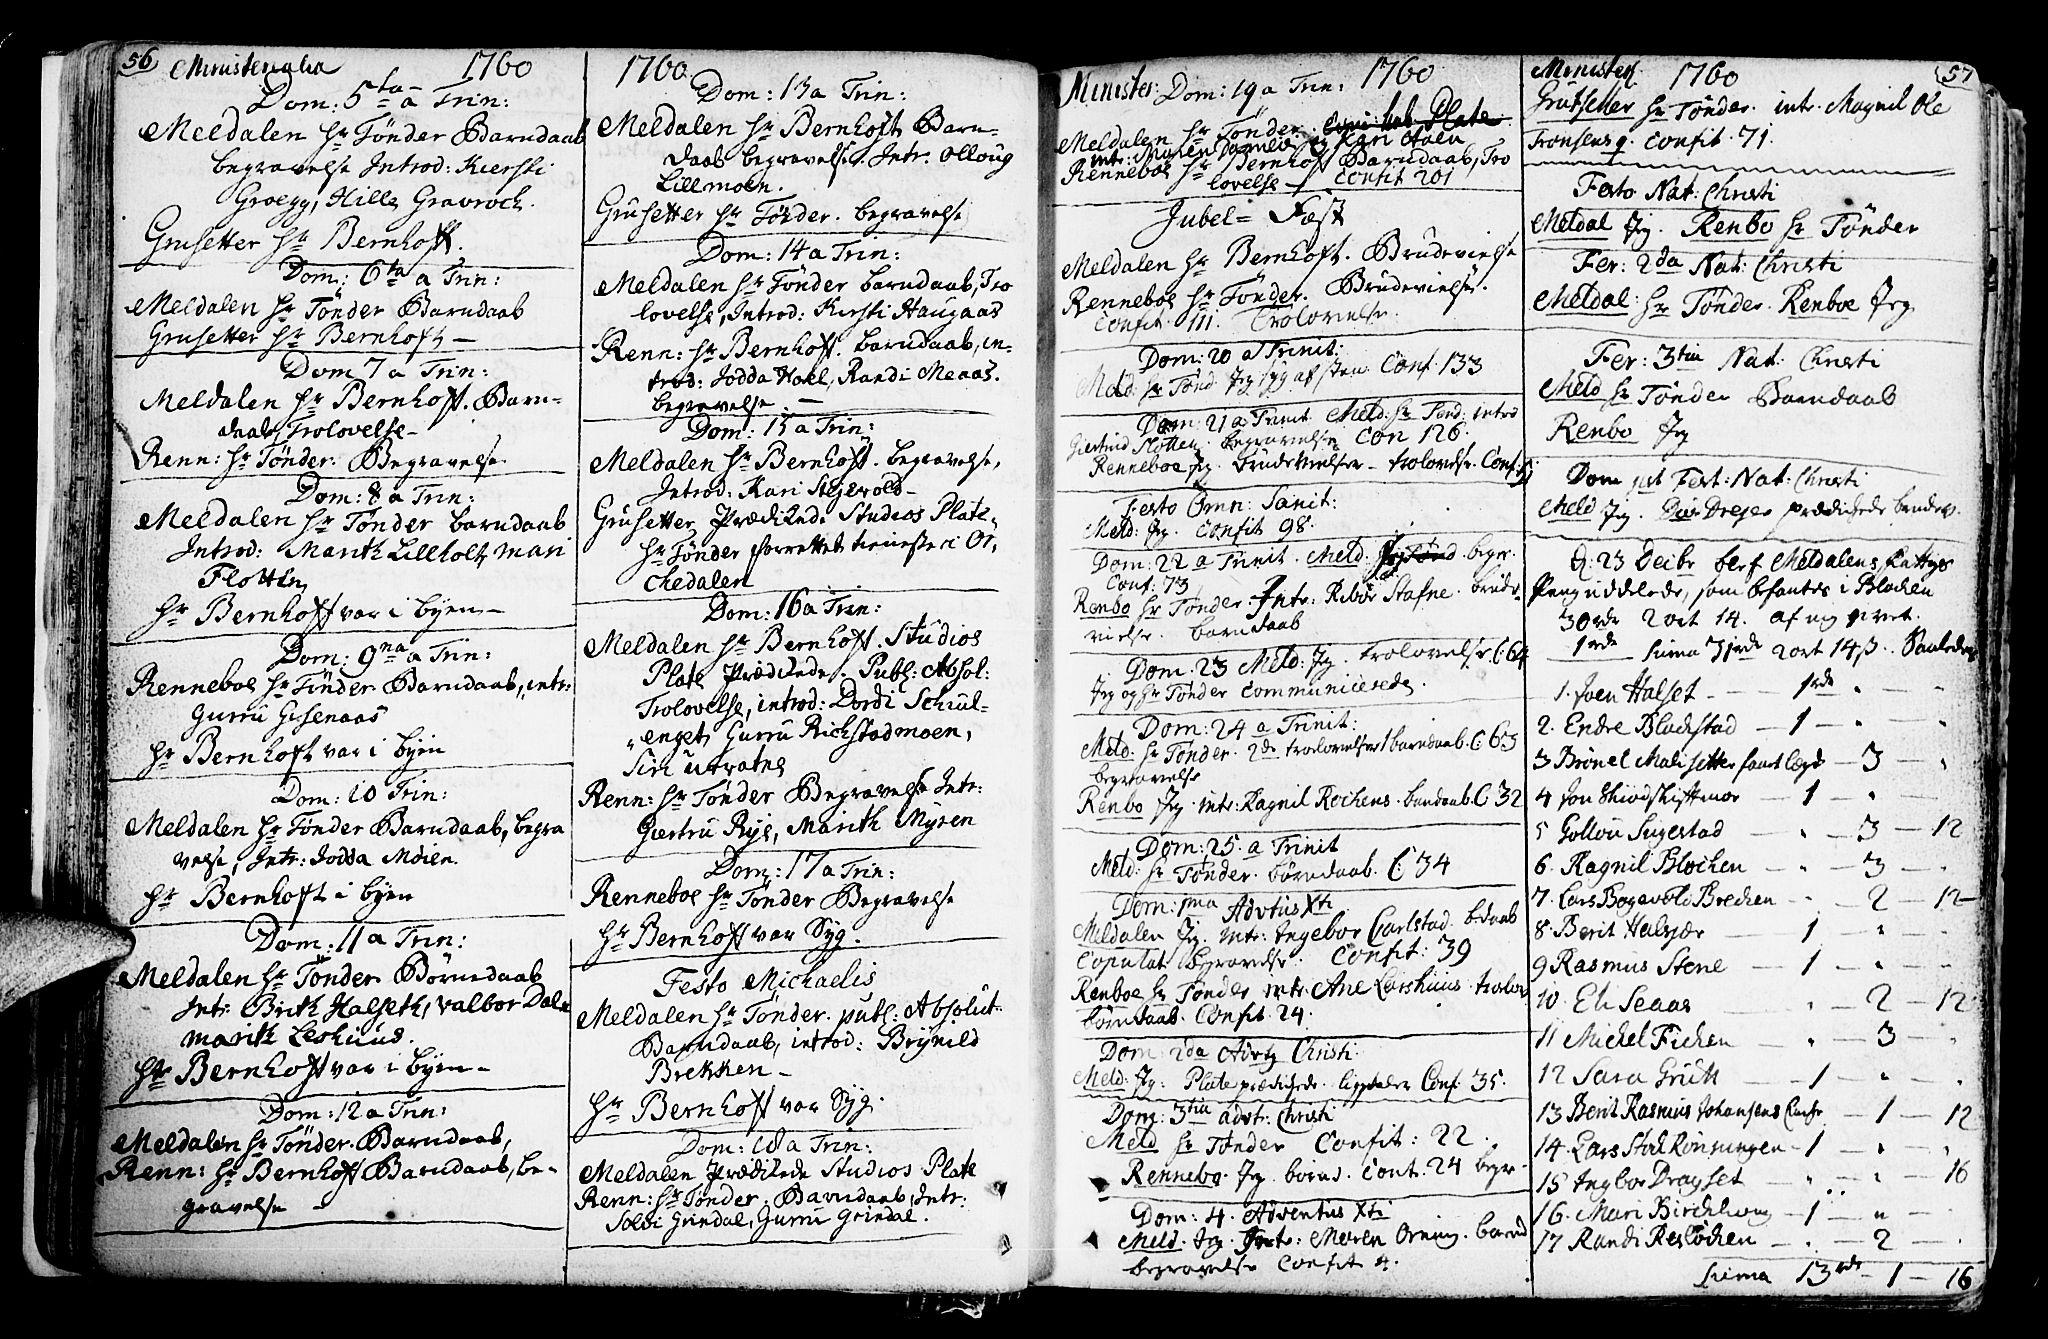 56 Ministerialia 1760
Dom: 5ta a Trin:
Meldalen Hr Tönder Barndaab
begravelse Introd: Kiersti
Groegg, Hille Gravrock.
Grusetter Hr Bernhoft.
Dom: 6ta a Trin:
Meldalen Hr Tönder Barndaab
Grusetter Hr Bernhoft —
Dom 7 a Trin:
Meldalen Hr Bernhoft. Barn-
daab, Trolovelse —
Renn: Hr Tönder. Begravelse
Dom: 8 a Trin:
Meldalen Hr Tönder barndaab
Introd: Marith Lillholt, mari
Flottin
Hr Bernhoft var i byen —
Dom: 9na a Trin:
Renneboe Hr Tönder Barndaab, intr:
Gurru Gisenaas
Hr Bernhoft var i byen
Dom: 10 Trin:
Meldalen Hr Tönder Barndaab, begra
velse, Intr: Jodda Moen.
Hr Bernhoft i byen
Dom: 11 a Trin:
Meldalen Hr Tönder Börndaab
Intr: Brith Halseth, Valbor Dale
marith Leshuus.
Hr Bernhoft var i byen —
Dom: 12 a Trin:
Meldalen Hr Tönder. Barndaab,
Renn: Hr Bernhoft Barndaab, be-
gravelse —
1760
Dom: 13 a Trin:
Meldalen Hr Bernhoft Barn-
daab begravelse. Intr: Olloug
Lillmoen.
Grusetter Hr Tönder. begravelse
Dom: 14 a Trin:
Meldalen Hr Tönder barndaab, Tro
lovelse, Introd: Kirsti Haugaas
Renn: Hr Bernhoft. barndaab, in-
trod: Jodda Hoel, Randi Meaas.
begravelse. —
Dom: 15 a Trin:
Meldalen Hr Bernhoft. begravelse,
Introd: Kari Stejevold —
Grusetter Prædikede Studios Plate,
Hr Tönder forrettet tieneste i Or,
chedalen
Dom: 16 a Trin:
Meldalen Hr Bernhoft. Studios
Plate Prædikede. Publ: Absol:
Trolovelse, introd: Dordi Schiul-
enget, Gurru Rickstadmoen,
Siri Utratne
Renn: Hr Tönder Begravelse Intr:
Giertru Rye, Marith Myren
Dom: 17 a Trin:
Renneboe Hr Tönder Begravelse
Hr Bernhoft var Syg.
Festo Michaelis
Meldalen Hr Tönder. publ: Absolut:
Barndaab, introd: Brynild
Brekken —
Hr Bernhoft var Syg.
Dom: 18 a Trin:
Meldalen Prædikede Studios Plate
Renn: Hr Tönder. Barndaab, Intr:
Solvi Grindal, Gurru Grindal.
Minister: Dom: 19 a Trin: 1760
Meldalen Hr Tönder.
Kari Holen
Renneboe Hr Bernhoft Barndaab, Tro
lovelse — Confit 201
Jubel= Fæst
Meldalen Hr Bernhoft. Brudevielse
Renneboe Hr Tönder. Brudevielse.
Confit. 111. Trolovelse.
Dom: 20 a Trinit:
Meld: Hr Tönd. Jeg syg af sten Conf. 133
Dom: 21 a Trinit Meld: Hr Tond: introd
Giertrud Slotten. begravelse Con 126.
Renneboe Jeg. brudevielser — trolovelse. Conf.
Festo Omn: Sanct:
Meld: Jeg. Confit 98.
Dom: 22 a Trinit. Meld. begr.
Conf. 73
Renbo Hr Tönder. Intr: Ribor Stafne. brude-
vielse. barndaab
Dom: 23 Meld: Jeg. trolovelse C. 64
Jeg og Hr Tönder communicerede.
Dom: 24 a Trinit:
Meld: Hr Tönder. 2de trolovelser 1 barndaab. C. 63
begravelse
Renbo Jeg. intr: Ragnil Rochens. barndaab. C. 32
Dom: 25. a Trinit
Meld: Hr Tönder. börndaab. C. 34
Dom: 1ma Advtus Xti
Meldalen Jeg. intr: Ingebor Carlstad. bdaab
Copulat. begravelse. Confit: 39
Renboe Hr Tönder intr: Ane Larshuus. trolov
börndaab. Confit. 24.
Dom: 2da Advtg Christi
Meld: Jeg. Plate prædichede. Conf. 35.
Dom: 3tia advt: Christi
Meld Hr Tönder Confit: 22.
Rennebo. Jeg. börnd. Conf. 24 begr.
Dom: 4. Adventus Xti
Meld. Jeg. Intr: Maren Orning. barnd
begravelse Confit 4.
Minister. 1760 57
Grutsetter Hr Tönder. intr. Magnil Ole
Tronsens q. confit. 71.
Festo Nat: Christi
Meldal Jeg. Renbo Hr Tönder
Fer: 2da Nat: Christi
Meldal: Hr Tönder. Renboe Jeg
Fer: 3tia Nat: Christi
Meld Hr Tönder Barndaab
Renbo Jeg
Dom post Fest: Nat: Christi
Meld Jeg. Dreyer prædichede
23 Decbr blef Meldalens Fattiges
Peng uddelede, som befantes i Blochen
30rde 2 ort 14. af
1rde — suma 31rde 2 ort 14ß. Saaledes
1. Joen Halset — 1rde " — "
2. Endre Blochstad — 1 — " — "
3 Brönel Malisetter faar lægd — 3 — "
4 Jon Skiodskiftmoe — 1 — " — "
5 Gollou Sugestad — " — 3 — 12
6. Ragnil Blochen — " — 3 — "
7. Lars Bogevold Brechen — " — 2 — 12
8. Berit Halsjær — 1 — " — "
9 Rasmus Stene — 1 — " — "
10. Eli Seaas — " — 2 — 12
11 Michel Fichen — " — 3 — "
12 Sara Grütt — 1 — " — "
13 Berit Rasmus Johansens — 1 — 12
14. Lars Stoel Rönningen — 1 — " — "
15 Ingbor Dragset — " — " — 16
16. Mari Birchhoug — 1 — " — "
17 Randi Reslöchen — " — 2 — "
Suma 13rde — 1 — 16